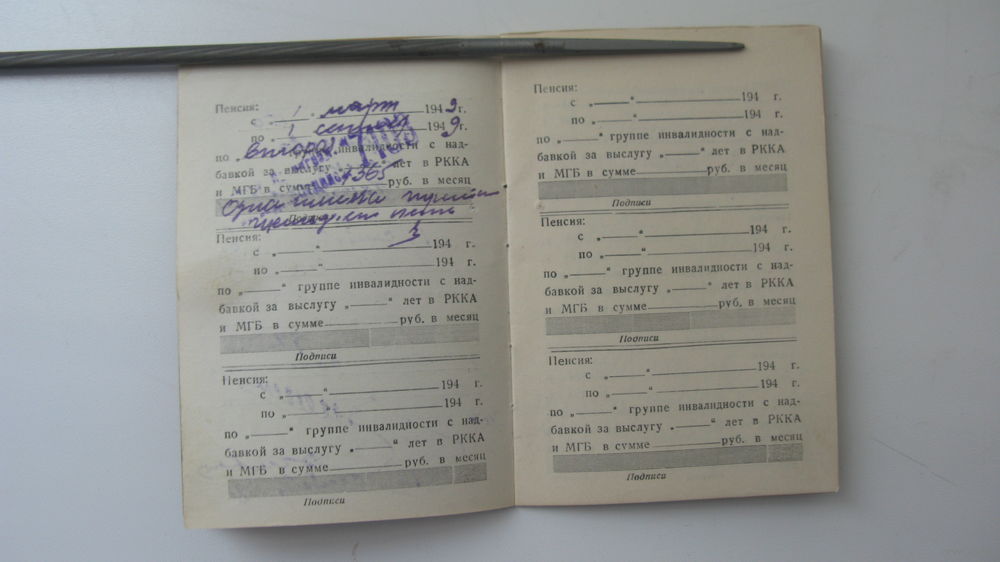 Пенсия:
с „ 1 " март 1949г.
по „ 1 " 1949г.
по „второй" группе инвалидности с над-
бавкой за выслугу лет в РККА
и МГБ в сумме 365 руб. в месяц
Подписи
Пенсия:
с „ " 194 г.
по „ " 194 г.
по „ " группе инвалидности с над-
бавкой за выслугу „ " лет в РККА
и МГБ в сумме руб. в месяц
Подписи
Пенсия:
с „ " 194 г.
по „ " 194 г.
по „ " группе инвалидности с над-
бавкой за выслугу „ " лет в РККА
и МГБ в сумме руб. в месяц
Подписи
Пенсия:
с „ " 194 г.
по „ " 194 г.
по „ " группе инвалидности с над-
бавкой за выслугу „ " лет в РККА
и МГБ в сумме руб. в месяц
Подписи
с „ " 194 г.
по „ " 194 г.
по „ " группе инвалидности с над-
бавкой за выслугу „ " лет в РККА
и МГБ в сумме руб. в месяц
Подписи
Пенсия:
с „ " 194 г.
по „ " 194 г.
по „ " группе инвалидности с над-
бавкой за выслугу „ " лет в РККА
и МГБ в сумме руб. в месяц
Подписи